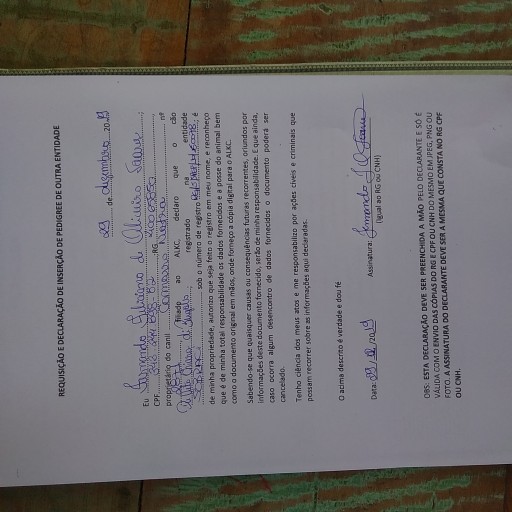 REQUISIÇÃO E DECLARAÇÃO DE INSERÇÃO DE PEDIGREE DE OUTRA ENTIDADE
29 de dezembro 2019
Eu Fernanda de Oliveira
CPF RG
proprietário do canil nº
filiado ao ALKC, declaro que o cão
registrado na entidade
sob o número de registro é
de minha propriedade, autorizo que seja feito o registro em meu nome, e reconheço
que é de minha total responsabilidade os dados fornecidos e a posse do animal bem
como o documento original em mãos, onde forneço a cópia digital para o ALKC.
Sabendo-se que quaisquer causas ou consequências futuras recorrentes, oriundos por
informações deste documento fornecido, serão de minha responsabilidade. E que ainda,
caso ocorra algum desencontro de dados fornecidos o documento poderá ser
cancelado.
Tenho ciência dos meus atos e me responsabilizo por ações cíveis e criminais que
possam recorrer sobre as informações aqui declaradas.
O acima descrito é verdade e dou fé
Data: 29/12/2019 Assinatura: Fernanda
(Igual ao RG ou CNH)
OBS: ESTA DECLARAÇÃO DEVE SER PREENCHIDA A MÃO PELO DECLARANTE E SÓ É
VÁLIDA COM O ENVIO DAS CÓPIAS DO RG E CPF OU CNH DO MESMO EM JPEG, PNG OU
FOTO. A ASSINATURA DO DECLARANTE DEVE SER A MESMA QUE CONSTA NO RG CPF
OU CNH.